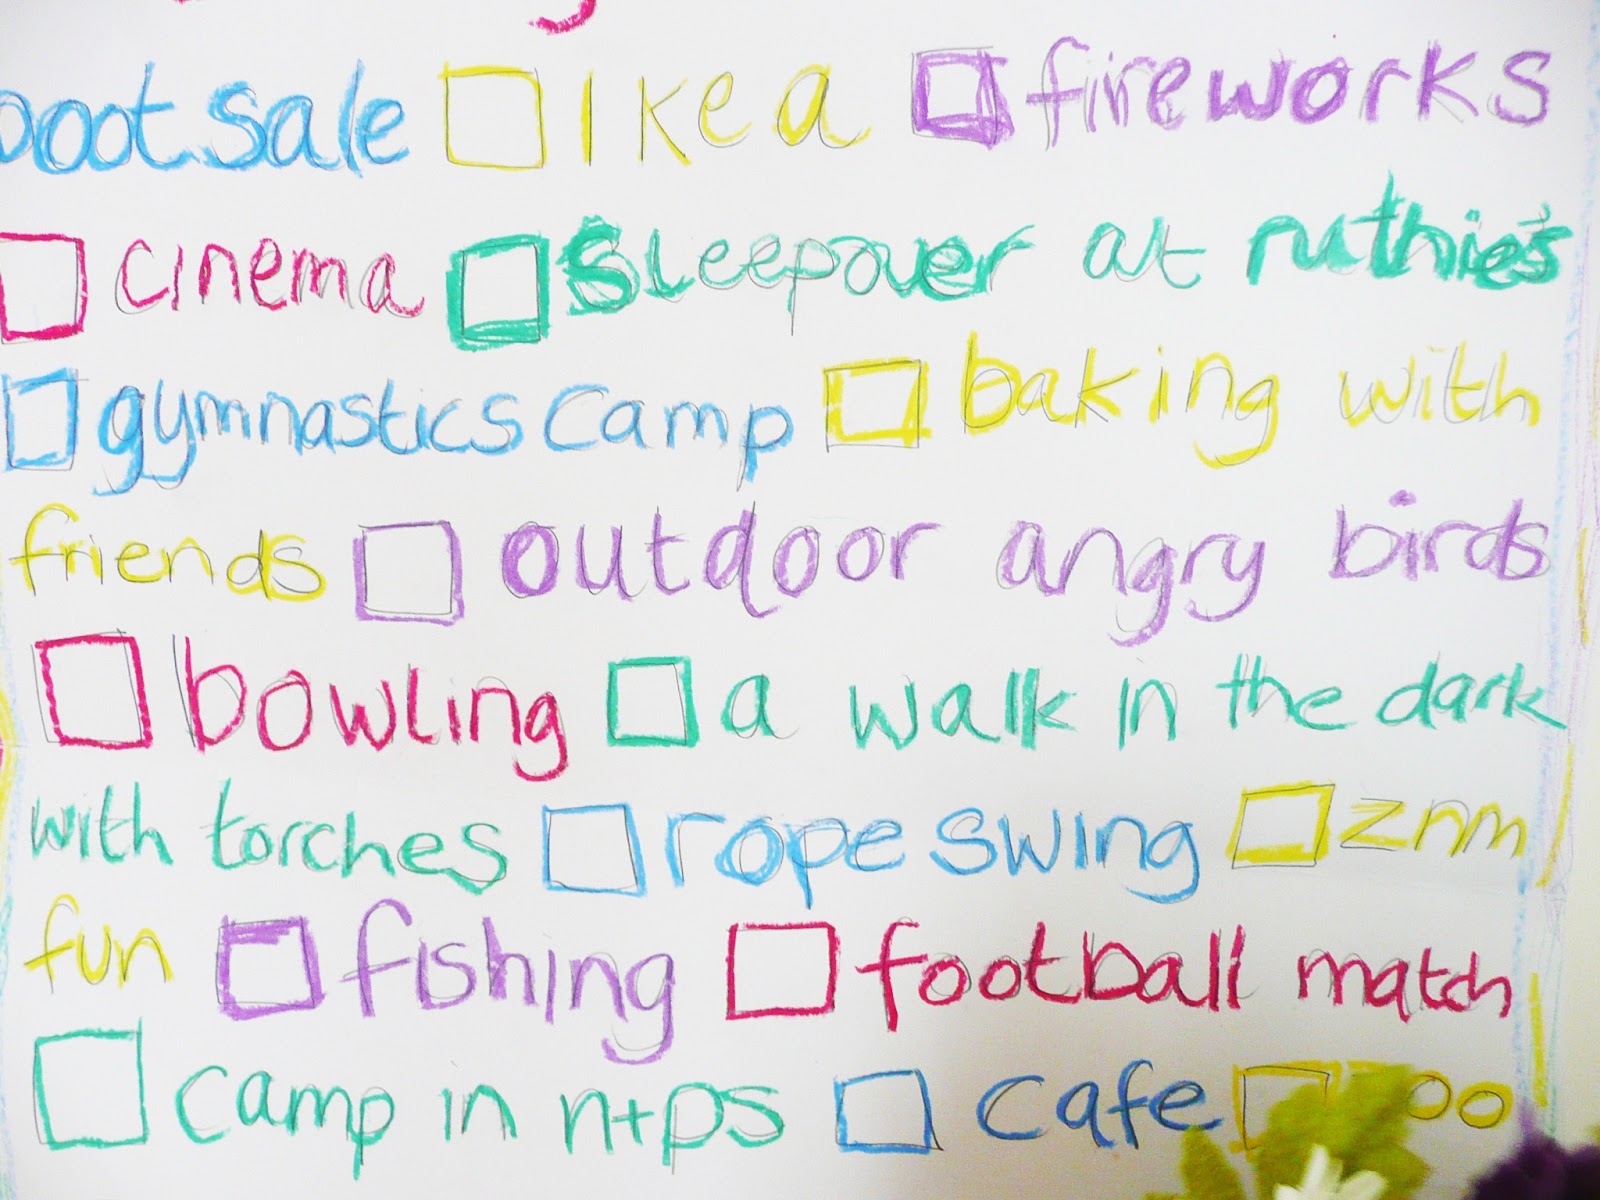 boot sale Ikea fireworks
cinema sleepover at ruthie's
gymnastics camp baking with
friends outdoor angry birds
bowling a walk in the dark
with torches rope swing znm
fun fishing football match
camp in n+ps cafe